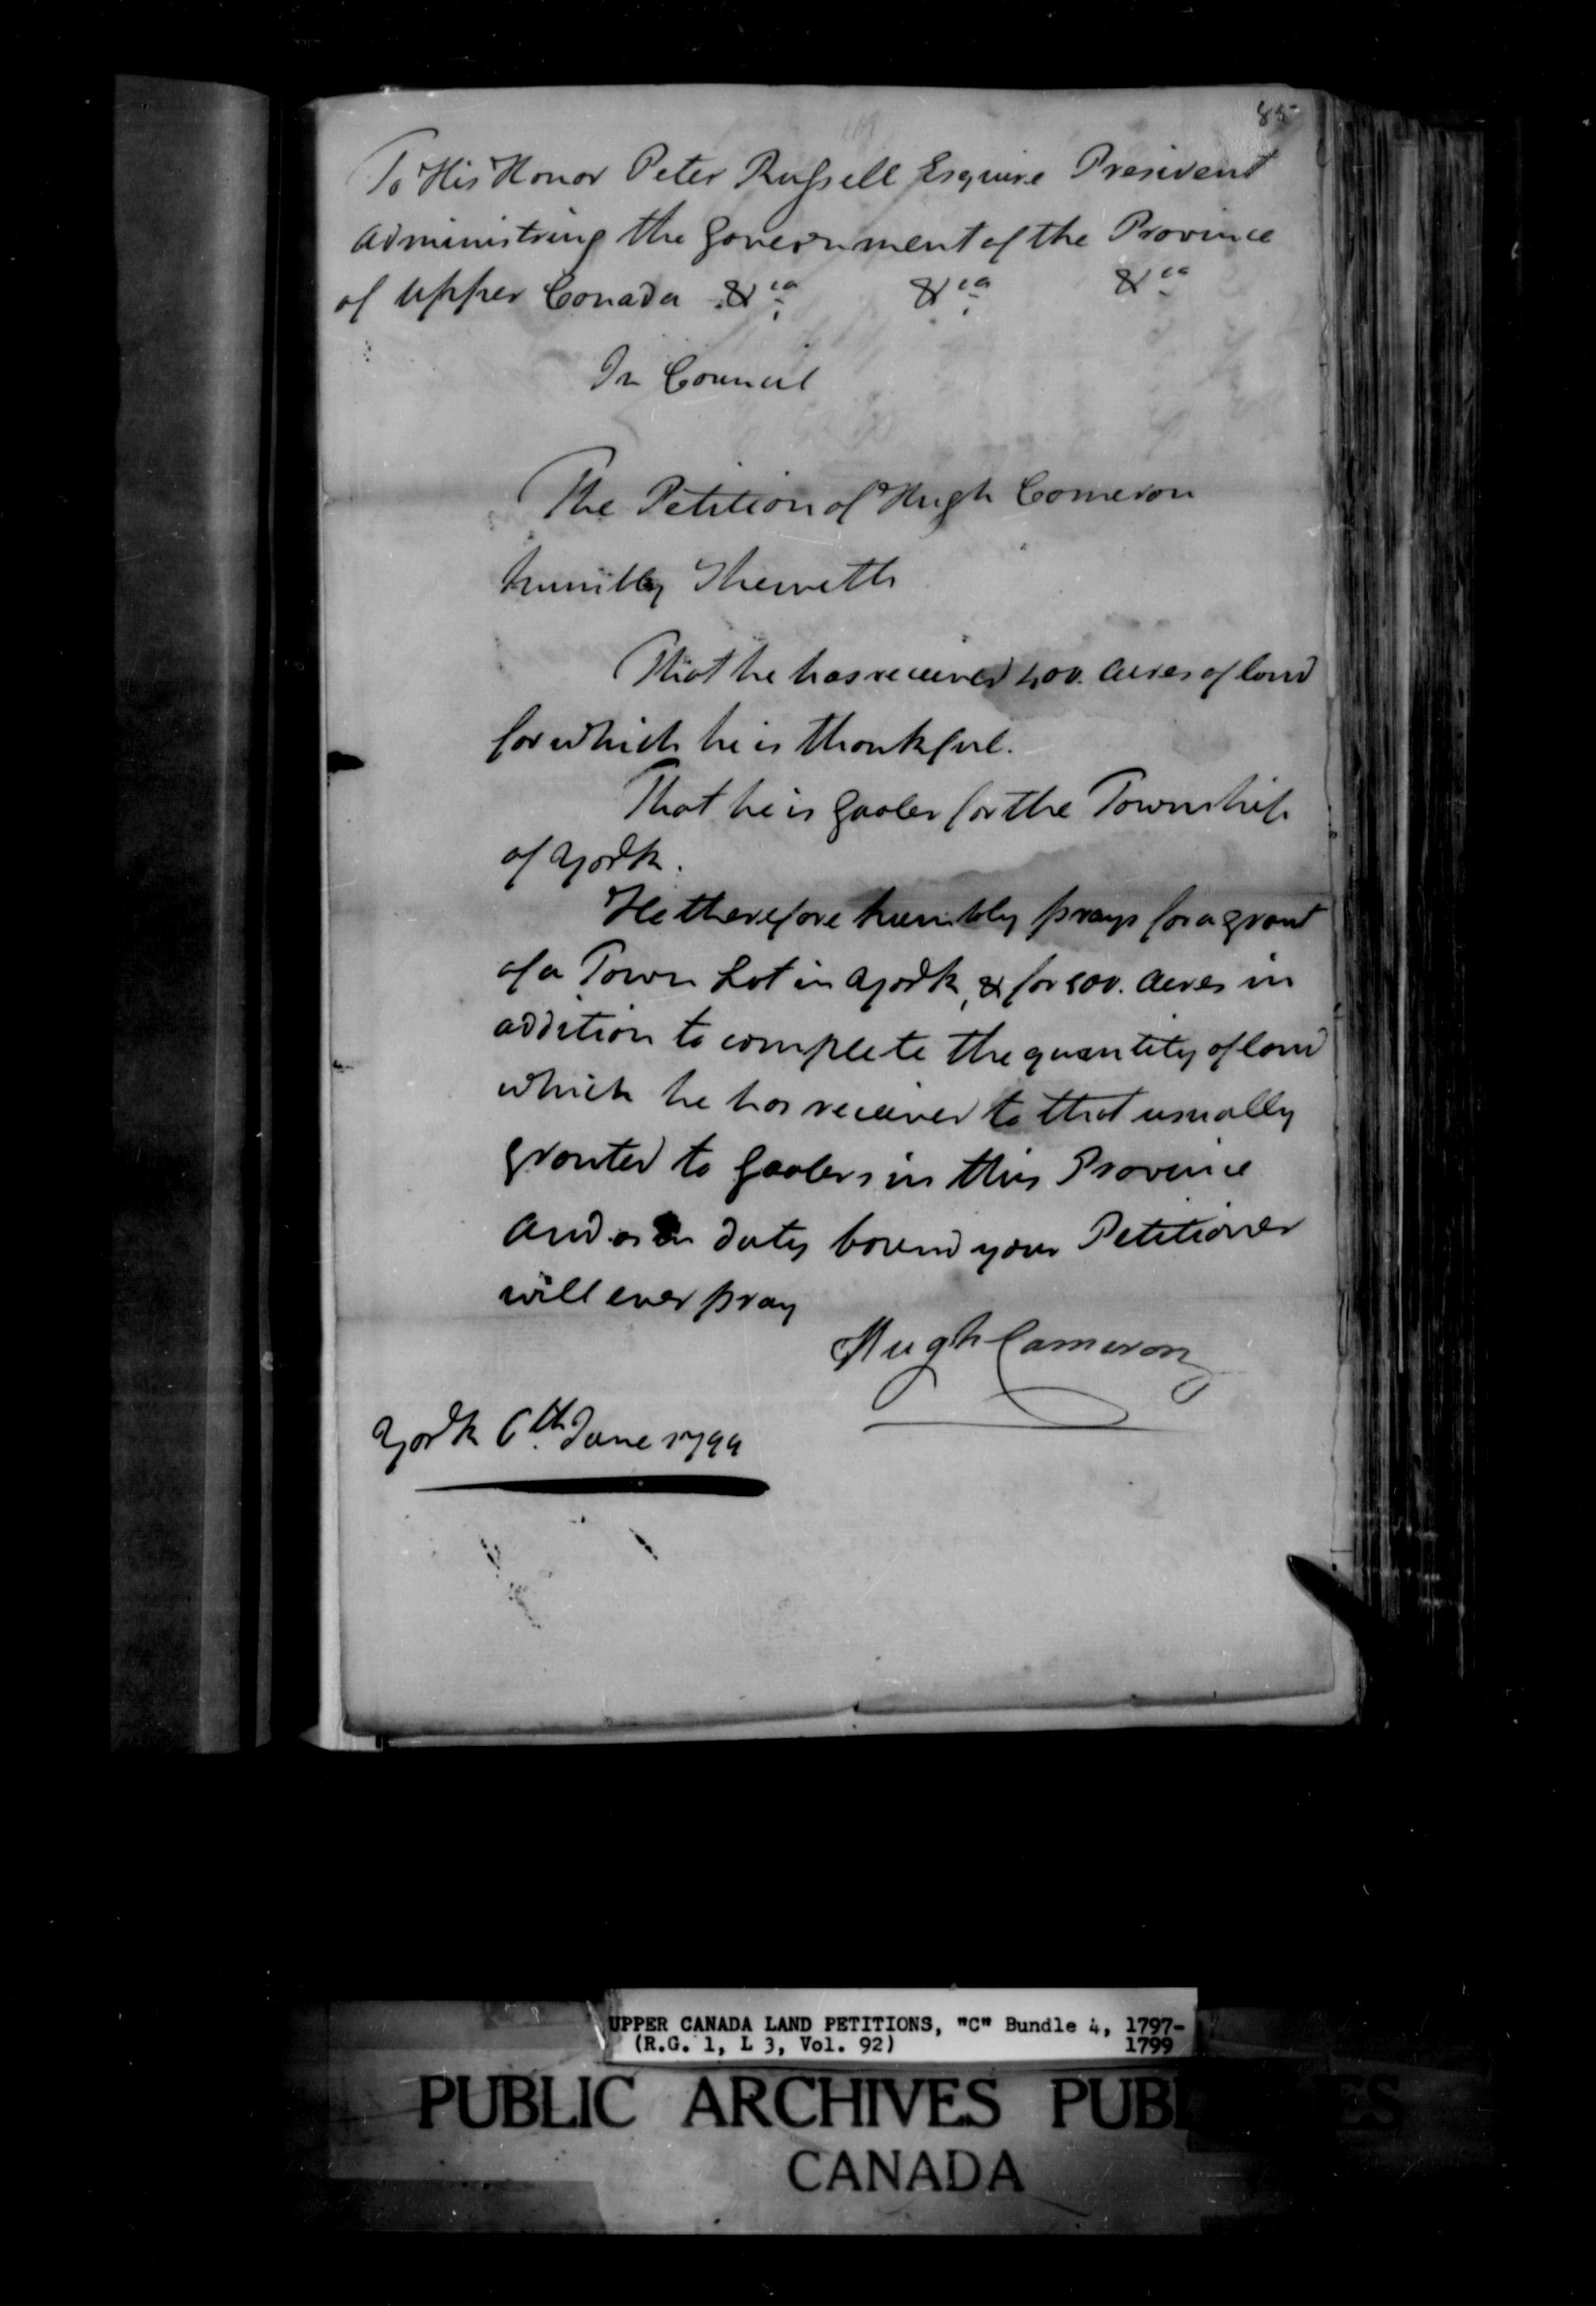 85
To His Honor Peter Russell Esquire President
administring the Government of the Province
of Upper Canada &ca &ca &ca
In Council
The Petition of Hugh Cameron
humbly Sheweth
That he has received 400. Acres of land
for which he is thankful.
That he is Gaoler for the Township
of York.
He therefore humbly prays for a grant
of a Town Lot in York, & for 500. Acres in
addition to complete the quantity of land
which he has received to that usually
granted to Gaolers in this Province
And as in duty bound your Petitioner
will ever pray
Hugh Cameron
York 6th. June 1799
UPPER CANADA LAND PETITIONS, "C" Bundle 4, 1797-
(R.G. 1, L 3, Vol. 92) 1799
PUBLIC ARCHIVES PUB ES
CANADA